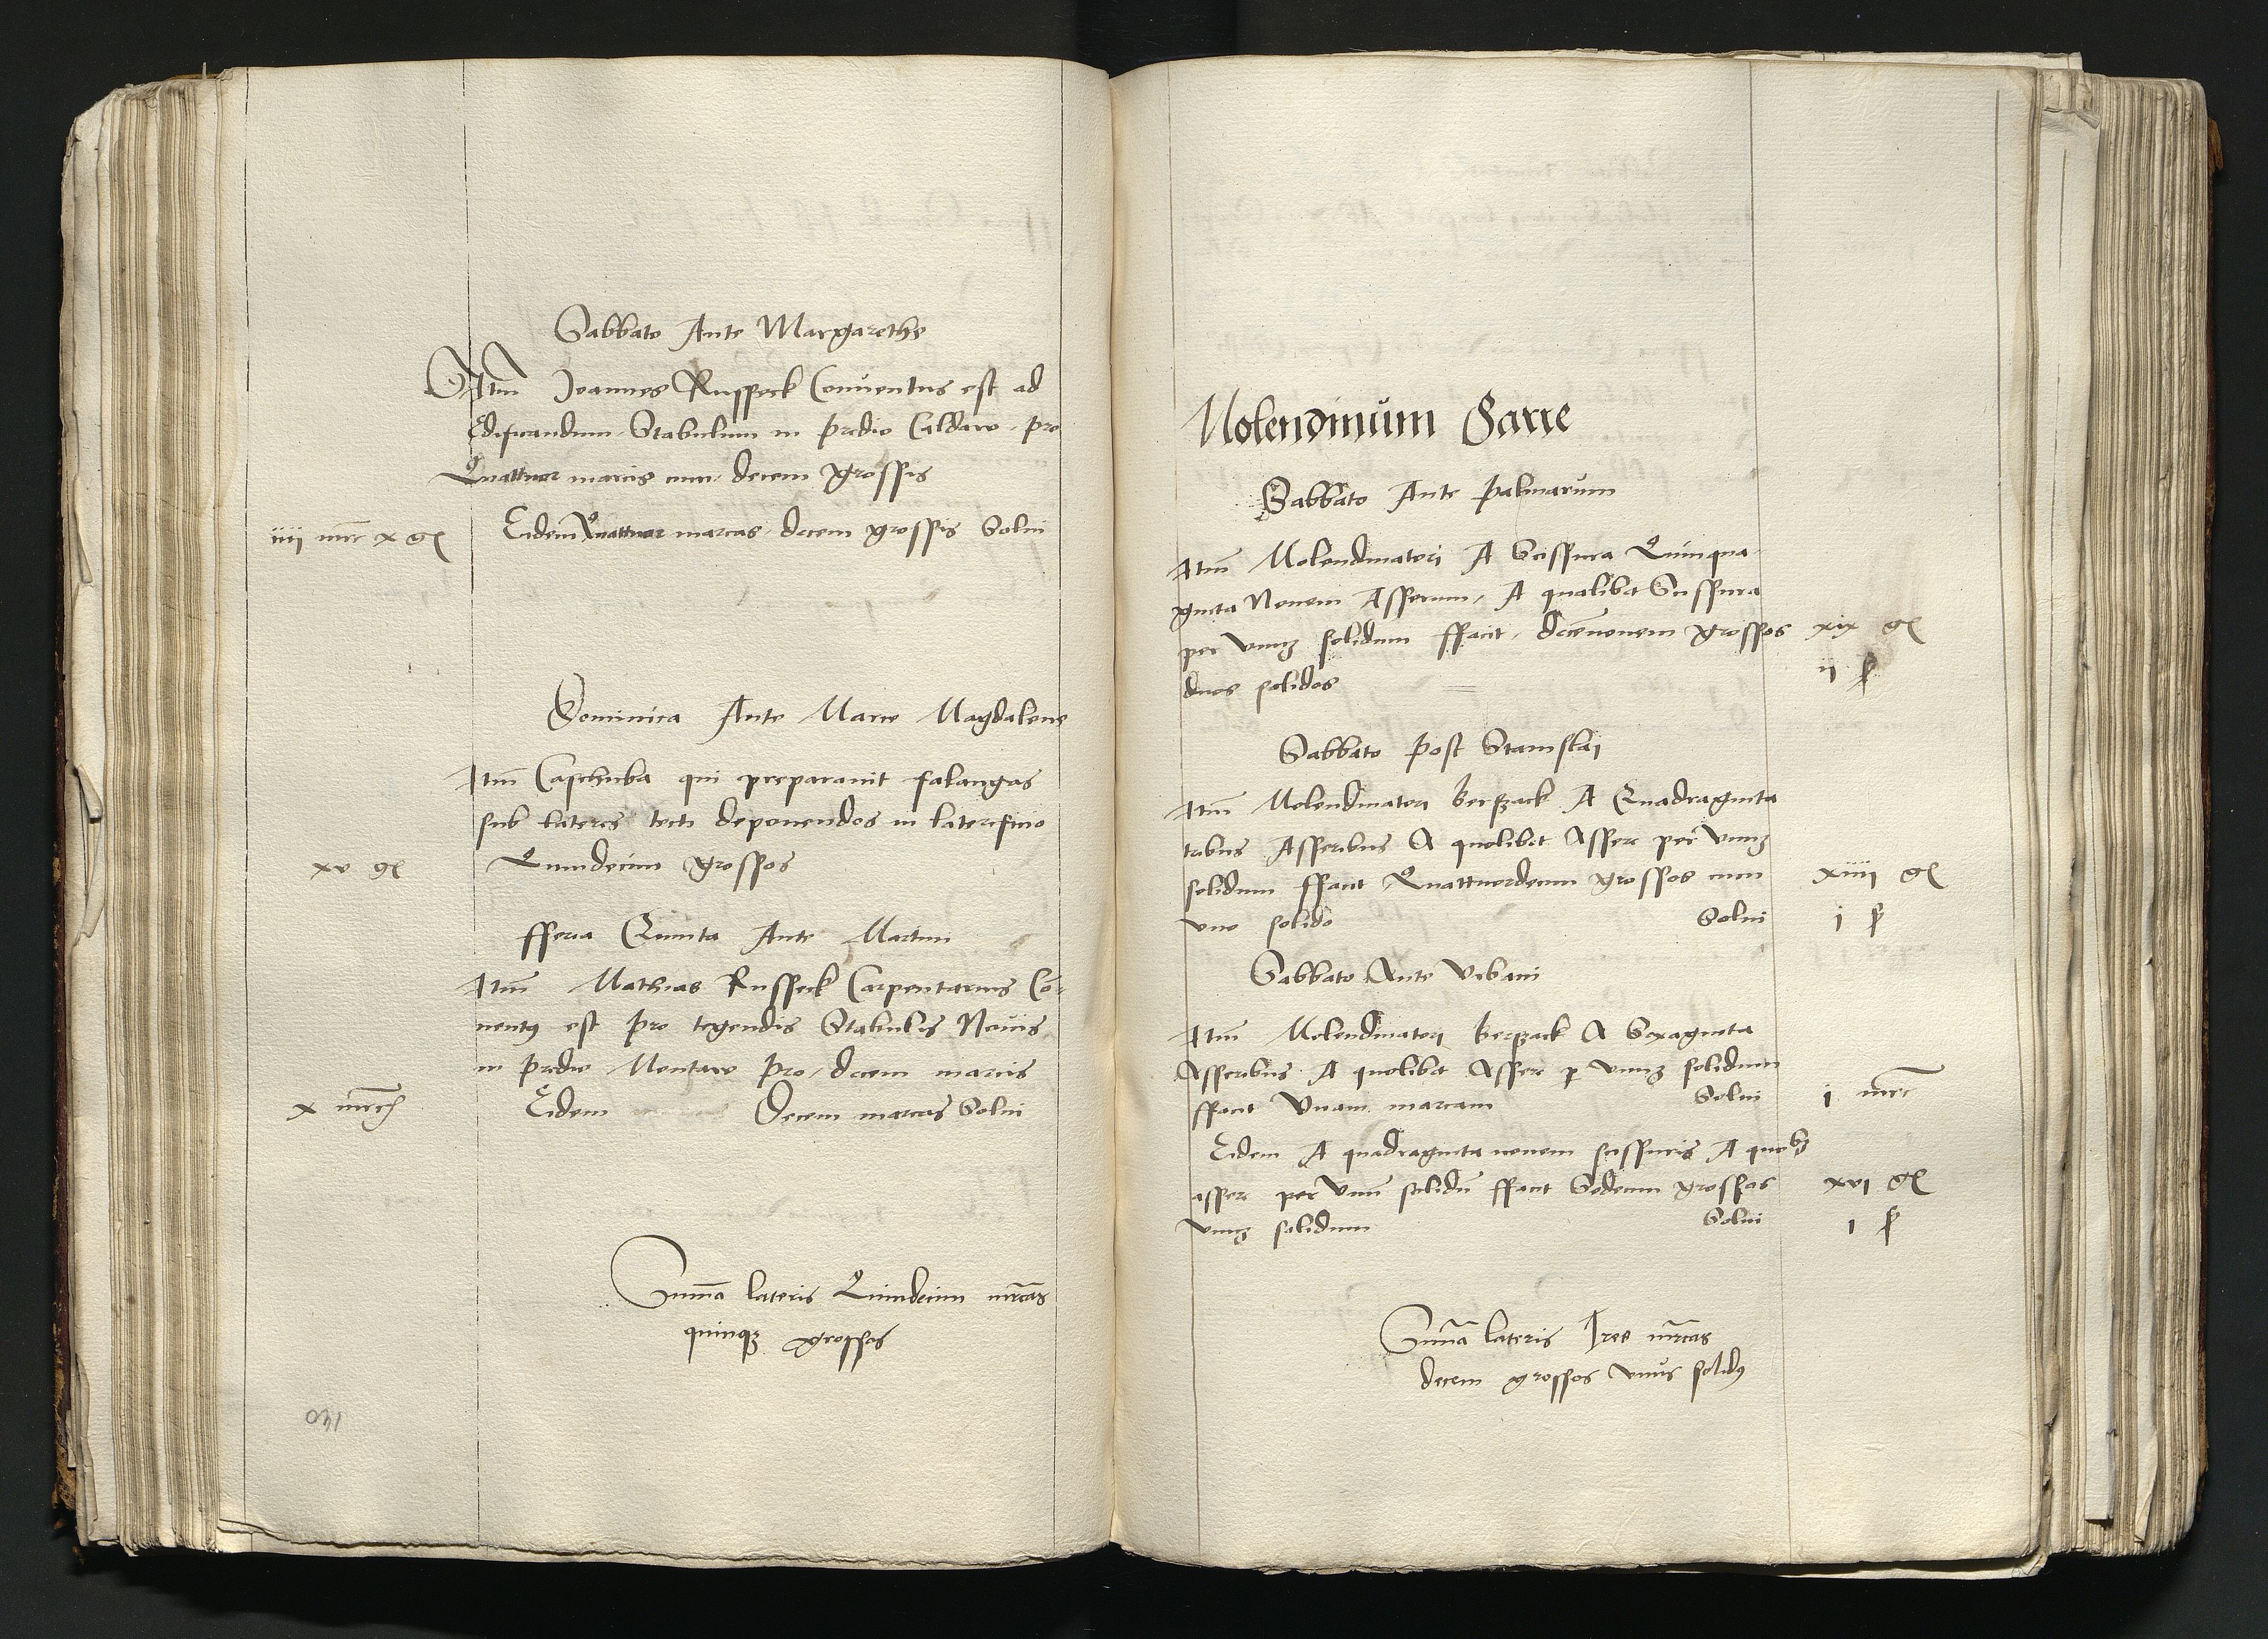 Sabbato Ante Margarethe
Itm̃ Joannes Russeck Conuentus est ad
Edificandum Stabulum in predio Caldaro pro
Quattuor marcis cum decem grossis
iiij mrc x gͤ Eidem Quattuor marcas decem grossis Solui
Dominica Ante Marie Magdalene
Itm̃ Caschuba qui preparauit falangas
sub lateres tecti deponendos in laterificio
xv gͤ Quindecim grossos
fferia Quinta Ante Martini
Itm̃ Mathias Russeck Carpentarius Cō-
uentꝰ est pro tegendis Stabulis Nouis
in predio Montaro pro decem marcis
x mrc Eidem Decem marcas Solui
Sum̄a lateris Quindecim mrcas
quinqꝫ grossos
140
Molendinum Sarre
Sabbato Ante palmarum
Itm̃ Molendinatori A Scissura Quinqua
ginta Nouem Asserum, A qualibet Scissura
per vnuꝫ solidum ffacit decenouem grossos xix gͤ
duos solidos ij ß
Sabbato post Stanislai
Itm̃ Molendinatori Berszack A Quadraginta
tribus Asseribus A quolibet Assere per vnuꝫ
solidum ffacit Quattuordecim grossos cum xiiij gͤ
vno solido Solui j ß
Sabbato Ante Vrbani
Itm̃ Molendinatori Berszack A Sexaginta
Asseribus A quolibet Assere p vnuꝫ solidum
ffacit Vnam marcam Solui j mrc
Eidem A quadraginta nouem scissuris A quolibꝫ
assere per Vnū solidū ffacit Sedecim grossos xvj gͤ
vnuꝫ solidum Solui j ß
Sum̄a lateris Tres mrcas
decem grossos vnus solidꝰ